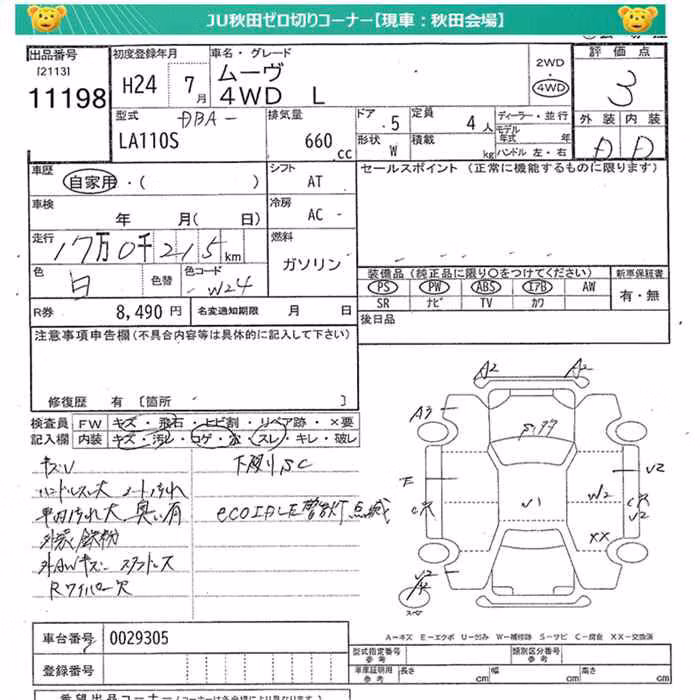 JU秋田ゼロ切りコーナー【現車：秋田会場】
出品番号
[2113]
11198
初度登録年月
H24 7月
車名・グレード
ムーヴ
4WD L
2WD
4WD
評価点
3
外装 内装
D D
型式
DBA-
LA110S
排気量
660 cc
ドア 5
定員 4人
形状 W
積載 kg
ディーラー・並行
モデル年式 年
ハンドル 左・右
車歴
自家用・( )
シフト
AT
セールスポイント (正常に機能するものに限ります)
車検
年 月( 日)
冷房
AC -
走行
17万0千215km
燃料
ガソリン
色
白
色替
色コード
W24
装備品(純正品に限り○をつけてください)
PS PW ABS エアB AW
SR ナビ TV カワ
新車保証書
有・無
R券 8,490円
名変通知期限 月 日
後日品
注意事項申告欄(不具合内容等は具体的に記入して下さい)
修復歴 有 [箇所 ]
検査員
記入欄
FW キズ・飛石・ヒビ割・リペア跡・×要
内装 キズ・汚レ・コゲ・穴・スレ・キレ・破レ
キズU
下廻りSC
ハンドルスレ大 シート汚れ
車内汚れ大、臭い有
ecoエアしE警告灯点滅
外装鉄粉
外AWキズ スタッドレス
Rワイパー欠
A2 A2
A3
E
C穴
U1
W2
C穴
U2
U2
XX
U2
スペア
車台番号 0029305
登録番号
A－キズ E－エクボ U－凹み W－補修跡 S－サビ C－腐食 XX－交換済
型式指定番号
参考
類別区分番号
参考
車庫証明用
参考
長さ cm
幅 cm
高さ cm
希望出品コーナー